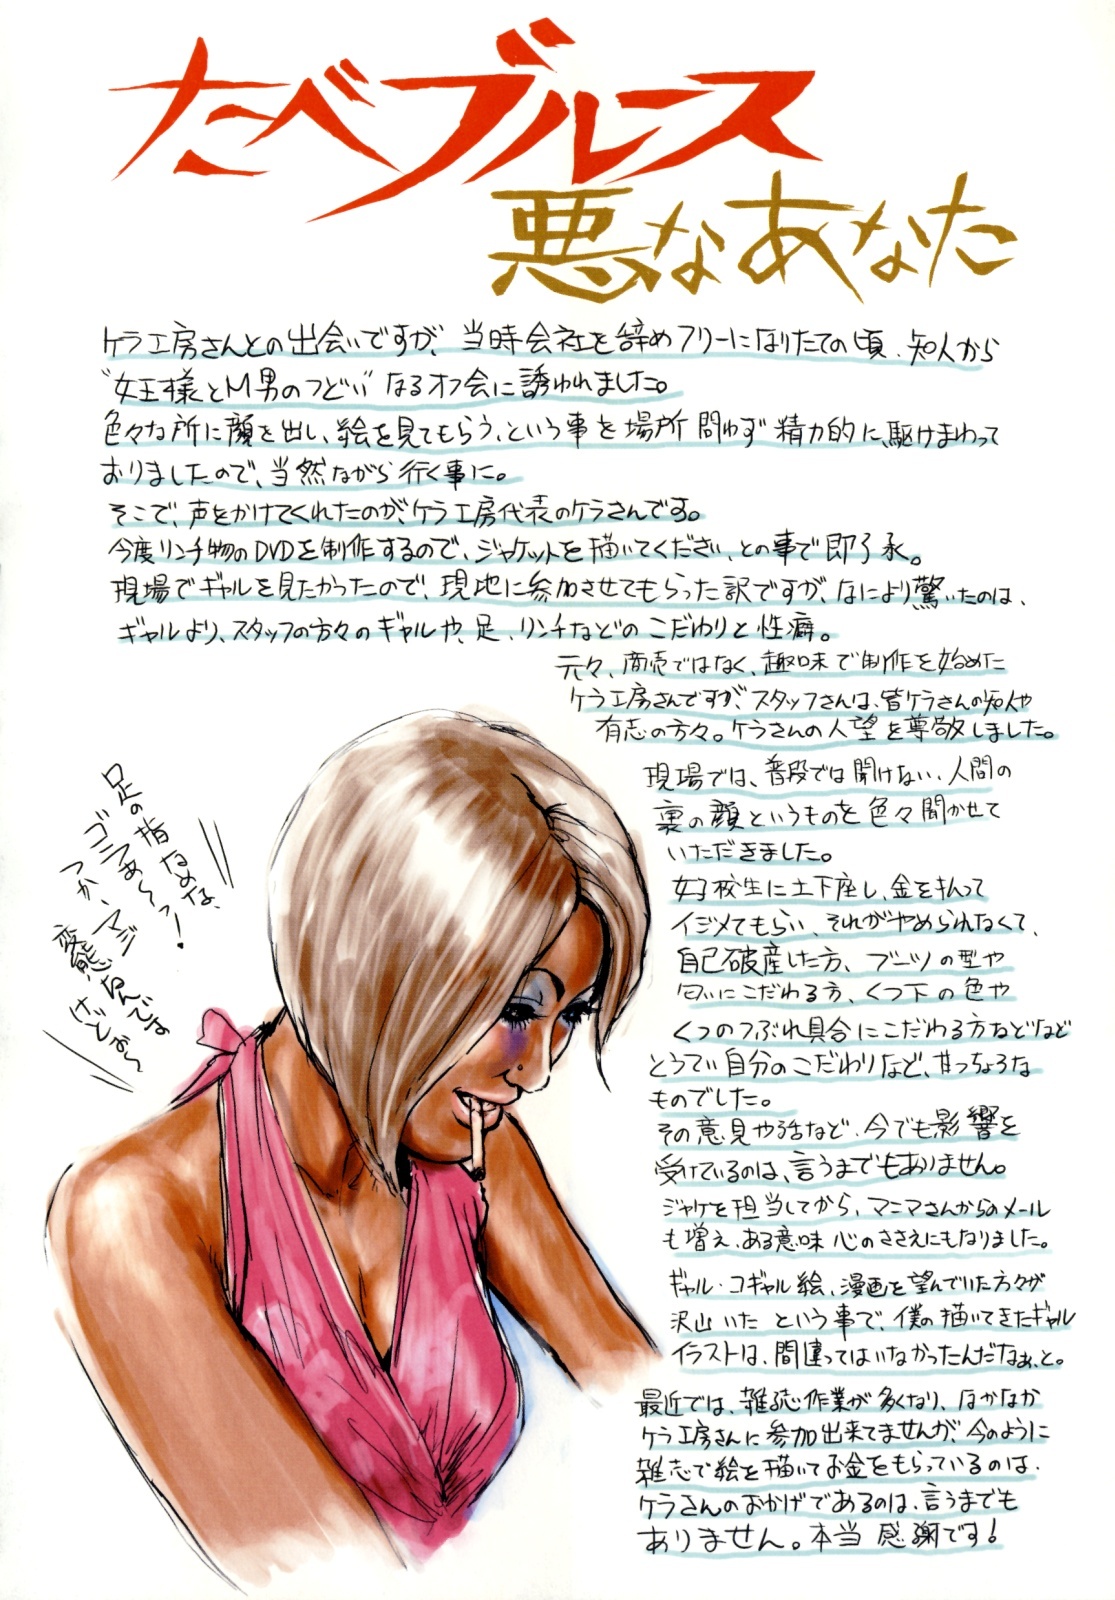 たべブルース
悪なあなた
ケラ工房さんとの出会いですが、当時会社を辞めフリーになりたての頃、知人から
"女王様とM男のつどい"なるオフ会に誘われました。
色々な所に顔を出し、絵を見てもらう、という事を場所問わず精力的に、駆けまわって
おりましたので、当然ながら行く事に。
そこで、声をかけてくれたのが、ケラ工房代表のケラさんです。
今度リンチ物のDVDを制作するので、ジャケットを描いてください、との事で即了承。
現場でギャルを見たかったので、現地に参加させてもらった訳ですが、なにより驚いたのは、
ギャルより、スタッフの方々のギャルや、足、リンチなどのこだわりと性癖。
元々、商売ではなく、趣味で制作を始めた
ケラ工房さんですが、スタッフさんは、皆ケラさんの知人や
有志の方々。ケラさんの人望を尊敬しました。
現場では、普段では聞けない、人間の
裏の顔というものを色々聞かせて
いただきました。
女子校生に土下座し、金を払って
イジメてもらい、それがやめられなくて、
自己破産した方、ブーツの型や
匂いにこだわる方、くつ下の色や
くつのつぶれ具合にこだわる方などなど
とうてい自分のこだわりなど、甘っちょろな
ものでした。
その意見や話など、今でも影響を
受けているのは、言うまでもありません。
ジャケを担当してから、マニマさんからのメール
も増え、ある意味心のささえにもなりました。
ギャル・コギャル絵、漫画を望んでいた方々が
沢山いたという事で、僕の描いてきたギャル
イラストは、間違ってはいなかったんだなぁ、と。
最近では、雑誌作業が多くなり、なかなか
ケラ工房さんに参加出来てませんが、今のように
雑志で絵を描いてお金をもらっているのは、
ケラさんのおかげであるのは、言うまでも
ありません。本当感謝です!
足の指なめな、
ゴラぁ〜っ!
つか、マジ
変態なんですけどぉ〜